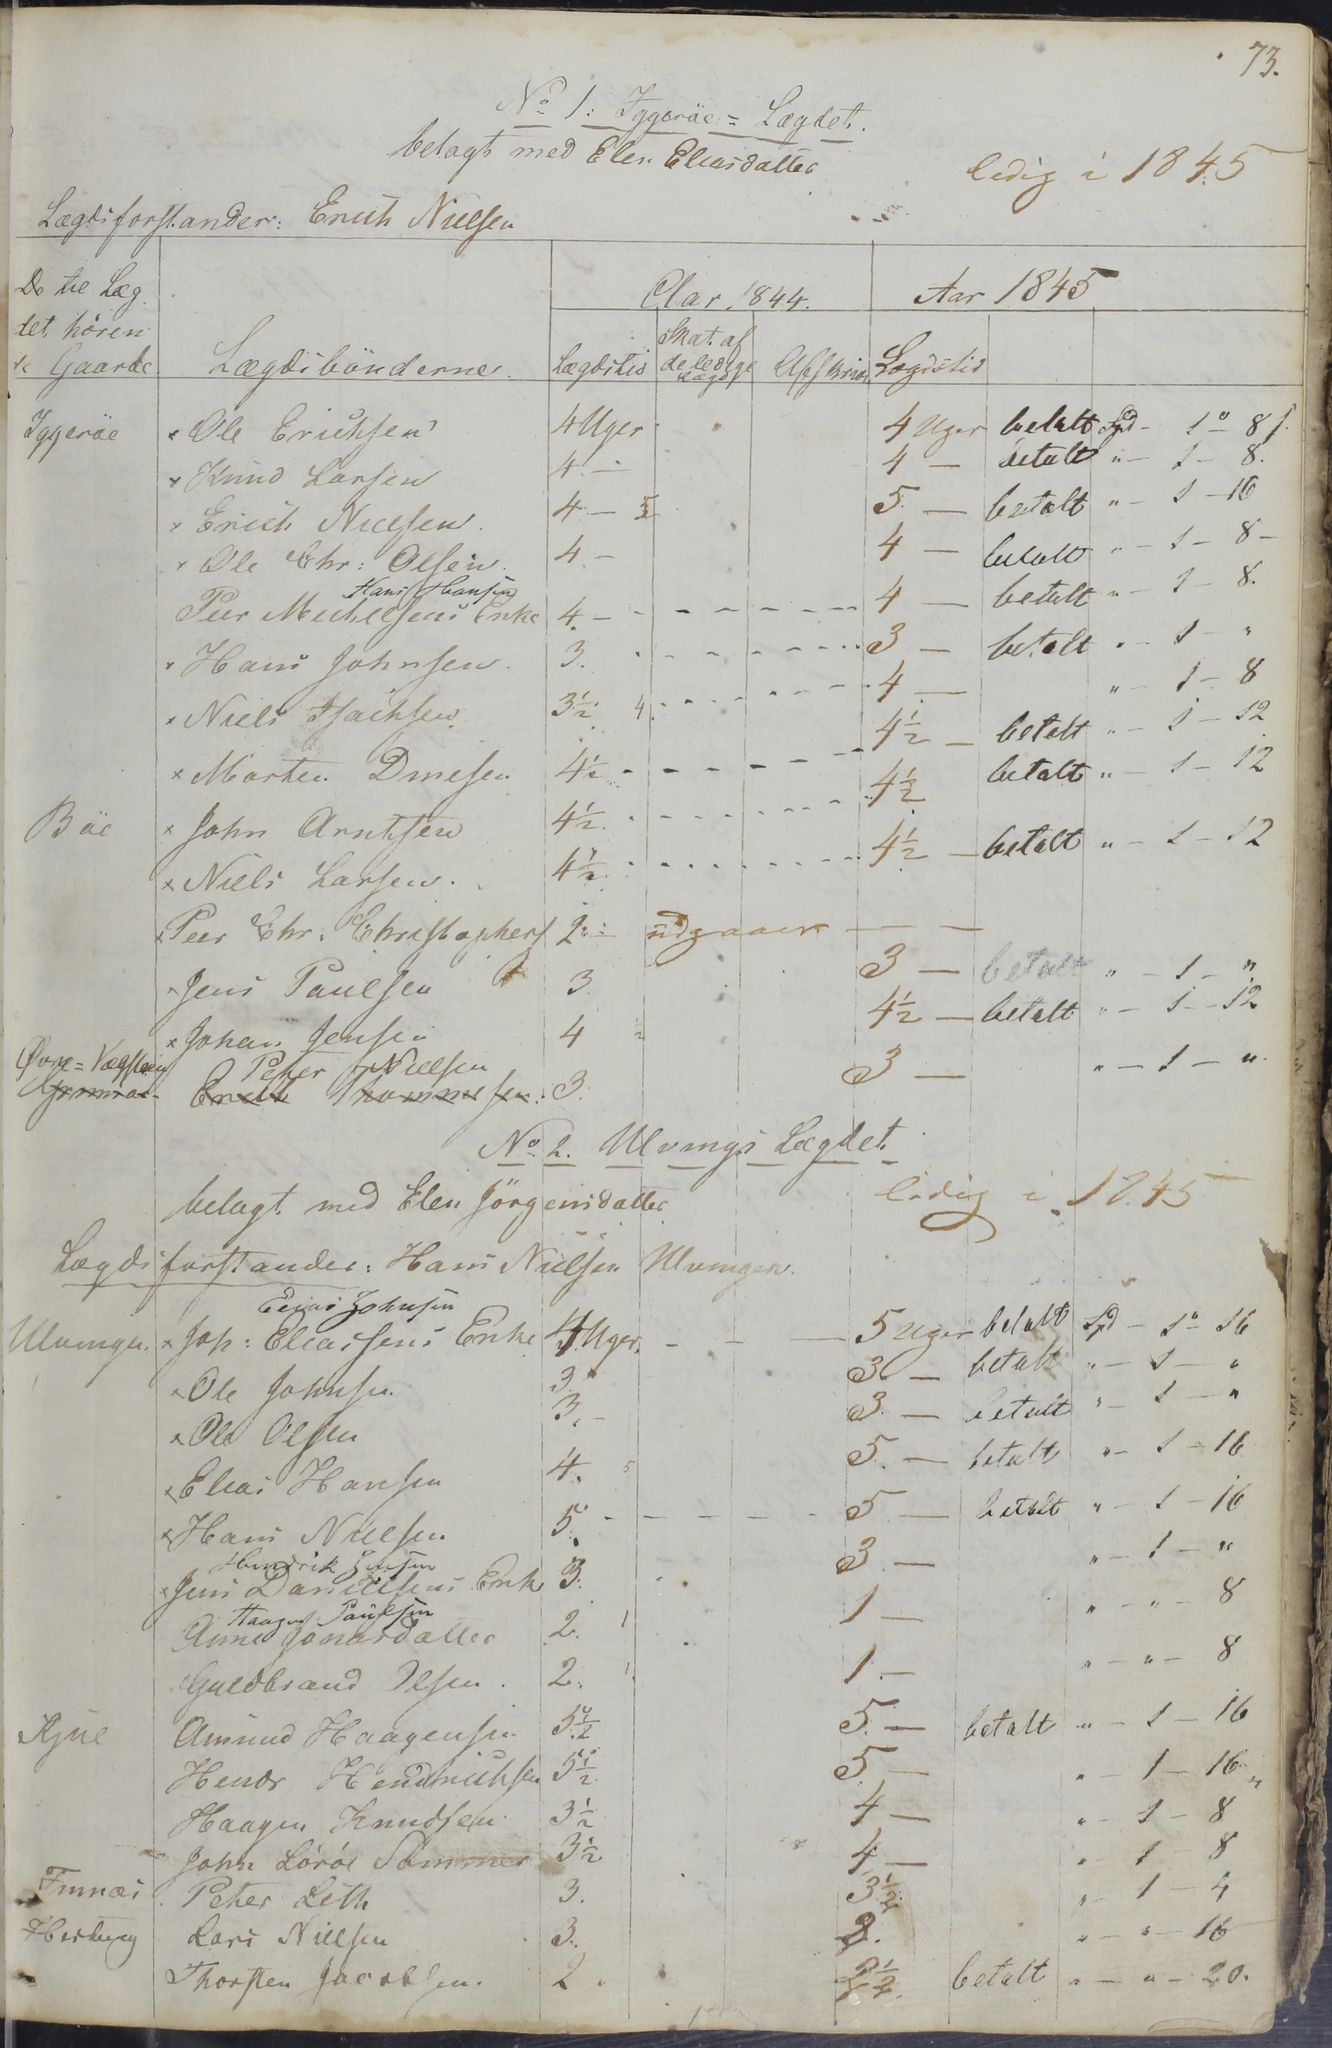 73.
No 1: Iggeröe = Lægdet.
belagt med Elen Eliasdatter
ledig i 1845
Lægdsforstander: Erich Nielsen
De til Læg
det hören
de Gaarde
Lægdsbönderne.
Aar 1844.
Aar 1845
Lægdstid
Skat af de ledige Lægd
Afskriv.
Lægdstid
Iggeröe × Ole Erichsen 4 Uger 4 Uger betalt Spd - 1 " 8 ſ
× Knud Larsen 4 — 4 — betalt " - 1 - 8.
× Erich Nielsen. 4 — 5 5 — betalt " - 1 - 16
× Ole Chr: Olsen. 4 - 4 — betalt " - 1 - 8 -
Hans Hansen
Peer Michelsens Enke 4. - 4 — betalt " - 1 - 8.
× Hans Johnsen. 3. 3 — betalt " - 1 - "
× Niels Isachsen 3½ 4. 4 — " - 1 - 8
× Morten Dinesen 4½ 4½ — betalt " - 1 - 12
Böe × John Arntsen 4½. 4½ betalt " - 1 - 12
× Niels Larsen. 4½. 4½ — betalt " - 1 - 12
× Peer Chr: Christophers 2 - udgaaer — —
× Jens Paulsen 3 3 — betalt " - 1 - "
× Johan Jensen 4 ½ 4½ — betalt " - 1 - 12
Øvre = Vægsteen Peter Nielsen
Erich Thommesen. 3. 3 — " - 1 - "
No 2. Ulvings Lægdet.
belagt med Elen Jörgensdatter
ledig i 1845
Lægdsforstander: Hans Nielsen Ulvingen.
Elias Johnsen
Ulvingen. × Joh: Eliassens Enke 4 Uger. 5 Uger betalt Spd - 1 " 16
× Ole Johnsen 3 " 3 — betalt " - 1 - "
× Ole Olsen 3. - 3 — betalt " - 1 - "
× Elias Hansen 4. 5 5. — betalt " - 1 - 16
× Hans Nielsen 5. 5 — betalt " - 1 - 16
Hendrik Jensen
× Jens Danielsens Enke 3. 3 — " - 1 - "
Haagen Paulsen
Anne Jonasdatter 2. 1 1 — " - " - 8
Guldbrand Olsen. 2. 1. 1 — " - " - 8
Amund Haagensen 5½ 5. — betalt " - 1 - 16
Hendr Hendrichsen 5½ 5 — " - 1 - 16
Haagen Knudsen 3½ 4 — " - 1 - 8
John Löröe Sommer 3½ 4 — " - 1 - 8
Finnæs Peter Leth 3. 3½ " - 1 - 4
Lars Nielsen 3. 2. " - " - 16
Thorsten Jacobsen. 2 2½ betalt " - " - 20.